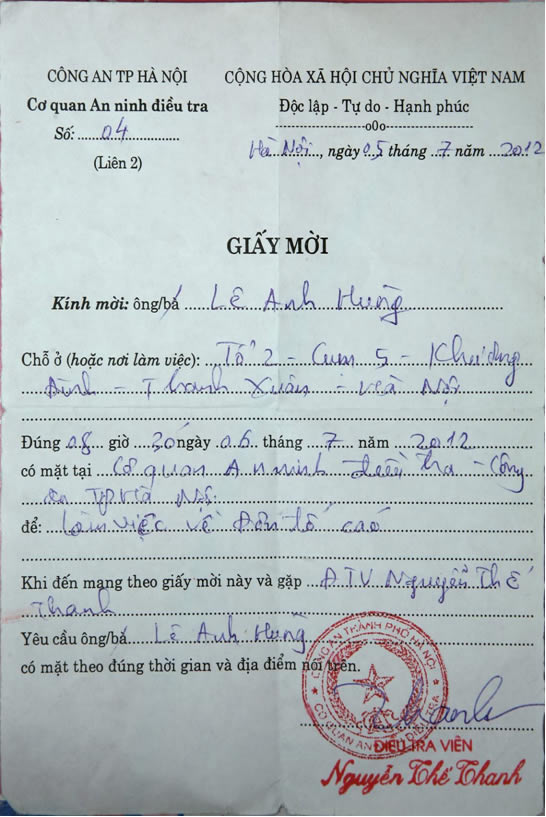 CÔNG AN TP HÀ NỘI
Cơ quan An ninh điều tra
Số: 04
(Liên 2)
CỘNG HÒA XÃ HỘI CHỦ NGHĨA VIỆT NAM
Độc lập - Tự do - Hạnh phúc
o0o
Hà Nội, ngày 05 tháng 7 năm 2012
GIẤY MỜI
Kính mời: ông/bà Lê Anh Hùng
Chỗ ở (hoặc nơi làm việc): Tổ 2 - Cụm 5 - Khương
Đình - Thanh Xuân - Hà Nội
Đúng 08 giờ 30 ngày 06 tháng 7 năm 2012
có mặt tại Cơ quan An ninh điều tra - Công
an TP Hà Nội
để: Làm việc về Đơn tố cáo
Khi đến mang theo giấy mời này và gặp ĐTV Nguyễn Thế
Thanh
Yêu cầu ông/bà Lê Anh Hùng
có mặt theo đúng thời gian và địa điểm nói trên.
CÔNG AN THÀNH PHỐ HÀ NỘI
CƠ QUAN AN NINH ĐIỀU TRA
ĐIỀU TRA VIÊN
Nguyễn Thế Thanh